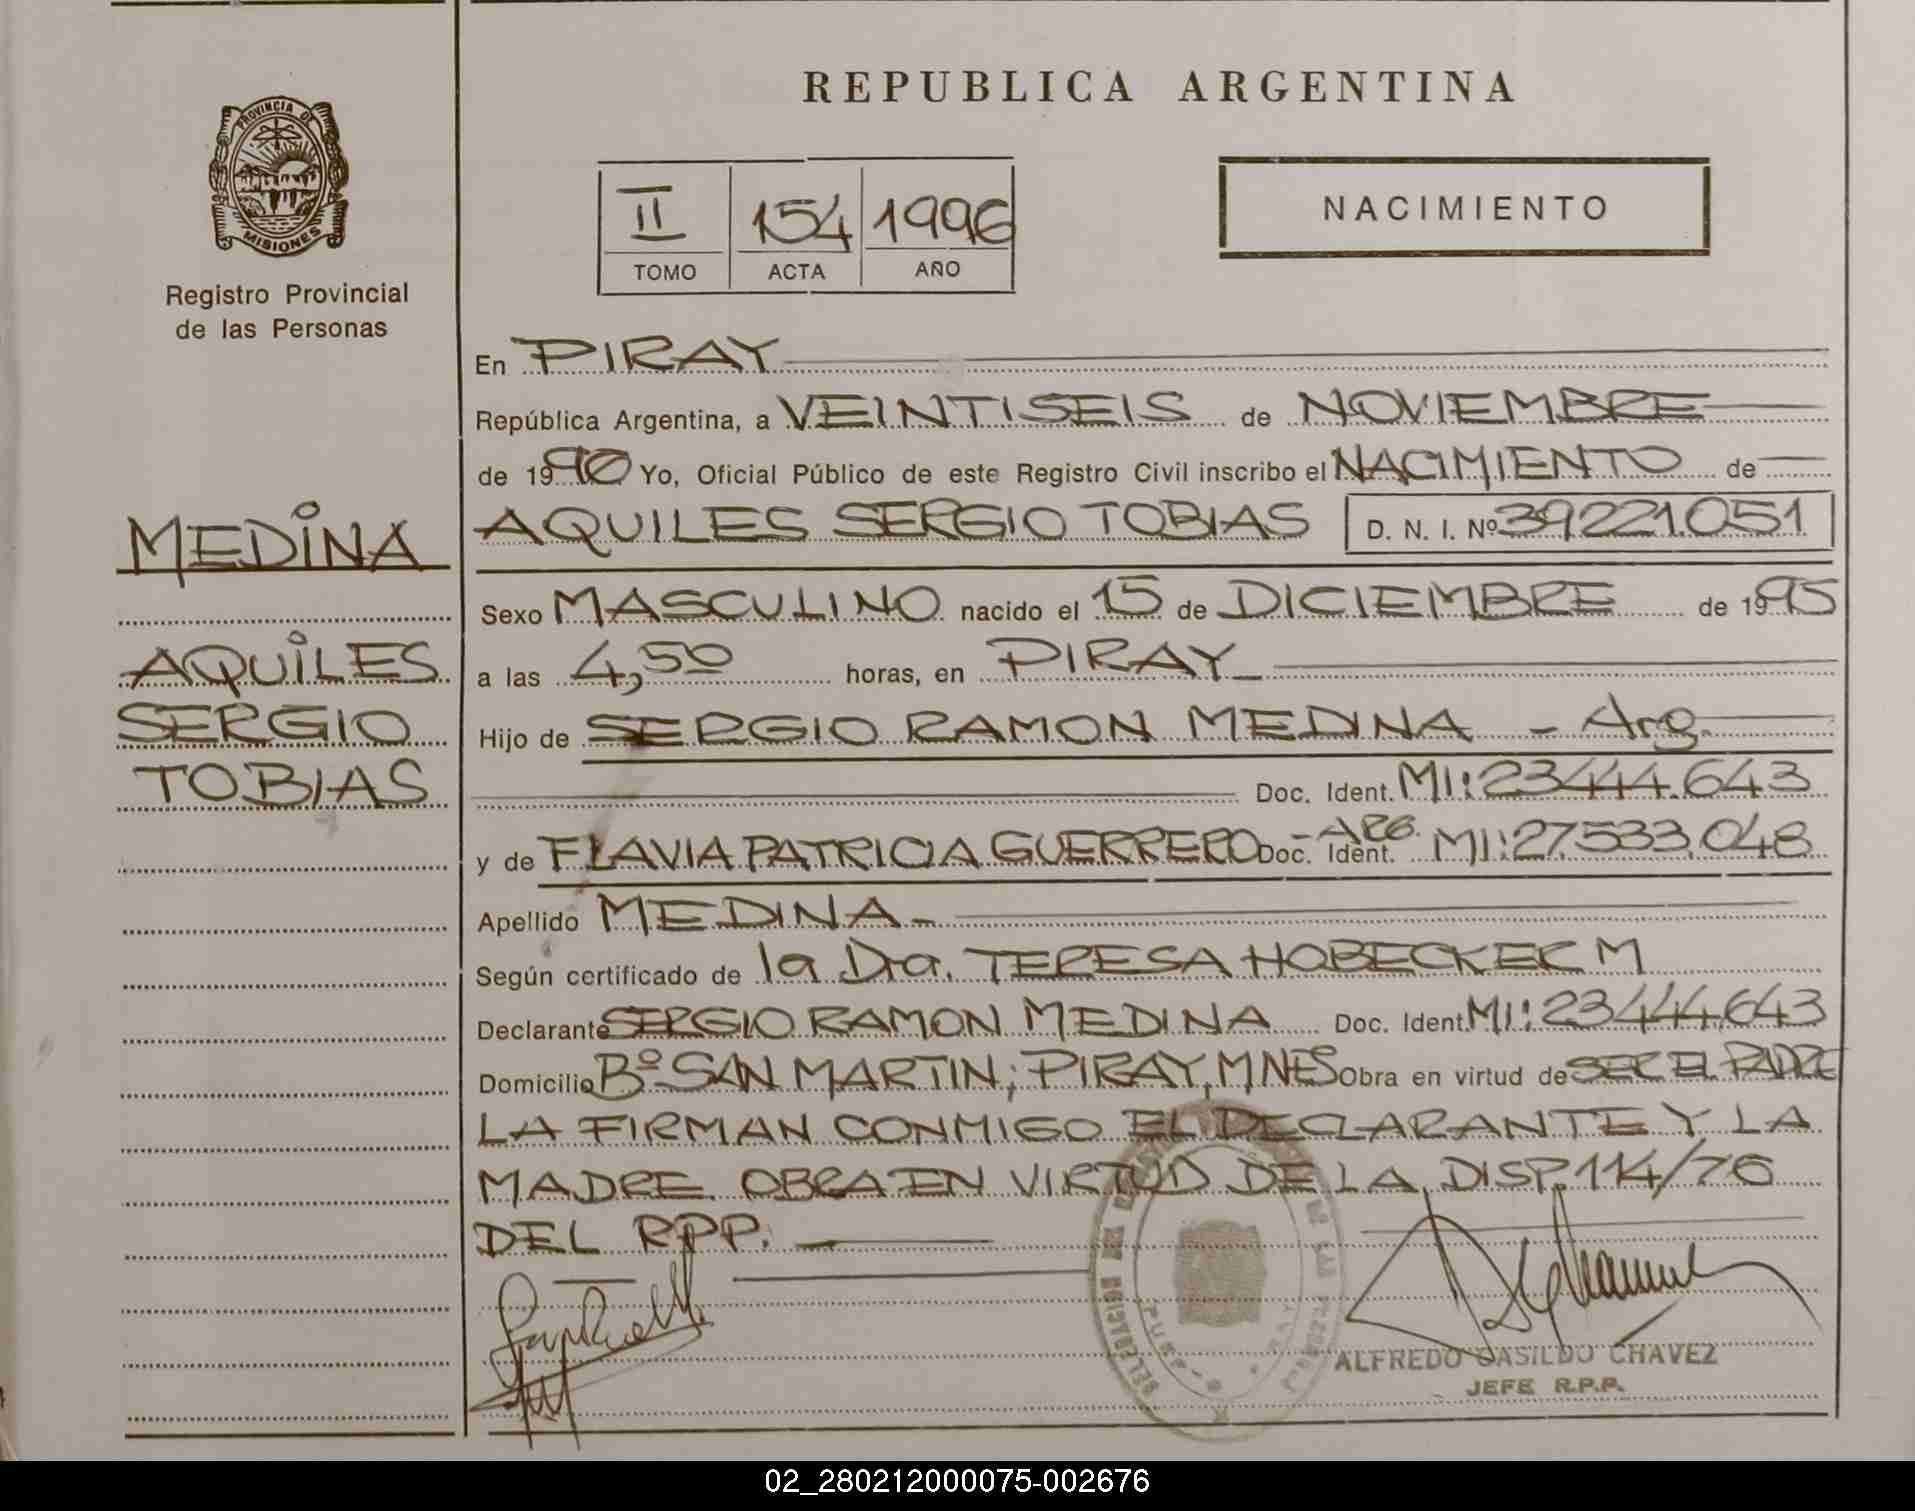 REPUBLICA ARGENTINA
PROVINCIA DE
MISIONES
Registro Provincial
de las Personas
II 154 1996
TOMO ACTA AÑO
NACIMIENTO
En PIRAY
República Argentina, a VEINTISEIS de NOVIEMBRE
de 1990 Yo, Oficial Público de este Registro Civil inscribo el NACIMIENTO de
AQUILES SERGIO TOBIAS D. N. I. Nº 39221.051
MEDINA
AQUILES
SERGIO
TOBIAS
Sexo MASCULINO nacido el 15 de DICIEMBRE de 1995
a las 4,50 horas, en PIRAY
Hijo de SERGIO RAMON MEDINA - Arg.
Doc. Ident. MI: 23444.643
y de FLAVIA PATRICIA GUERRERO - ARG. Doc. Ident. MI: 27.533.048
Apellido MEDINA -
Según certificado de la Dra. TERESA HOBECKER M
Declarante SERGIO RAMON MEDINA Doc. Ident. MI: 23444.643
Domicilio Bº SAN MARTIN; PIRAY, MNES Obra en virtud de SER EL PADRE
LA FIRMAN CONMIGO EL DECLARANTE Y LA
MADRE. OBRA EN VIRTUD DE LA DISP. 114/76
DEL RPP.
ALFREDO CASILDO CHAVEZ
JEFE R.P.P.
02_280212000075-002676